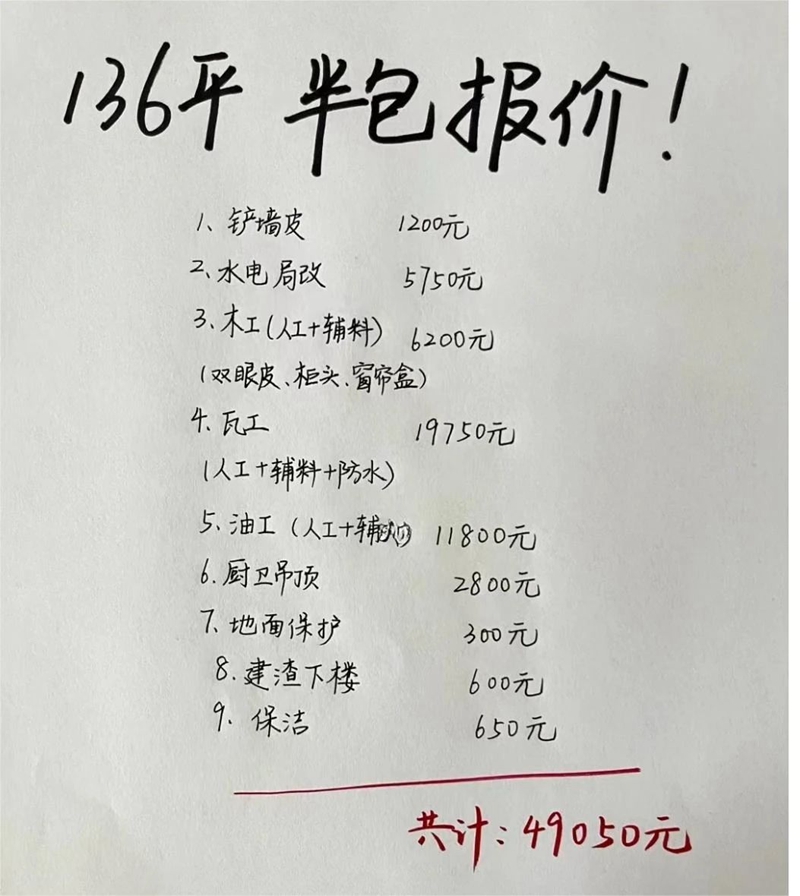 136平 半包报价!
1、铲墙皮 1200元
2、水电局改 5750元
3、木工(人工+辅料) 6200元
(双眼皮、柜头、窗帘盒)
4、瓦工 19750元
(人工+辅料+防水)
5、油工(人工+辅 11800元
6、厨卫吊顶 2800元
7、地面保护 300元
8、建渣下楼 600元
9、保洁 650元
共计:49050元